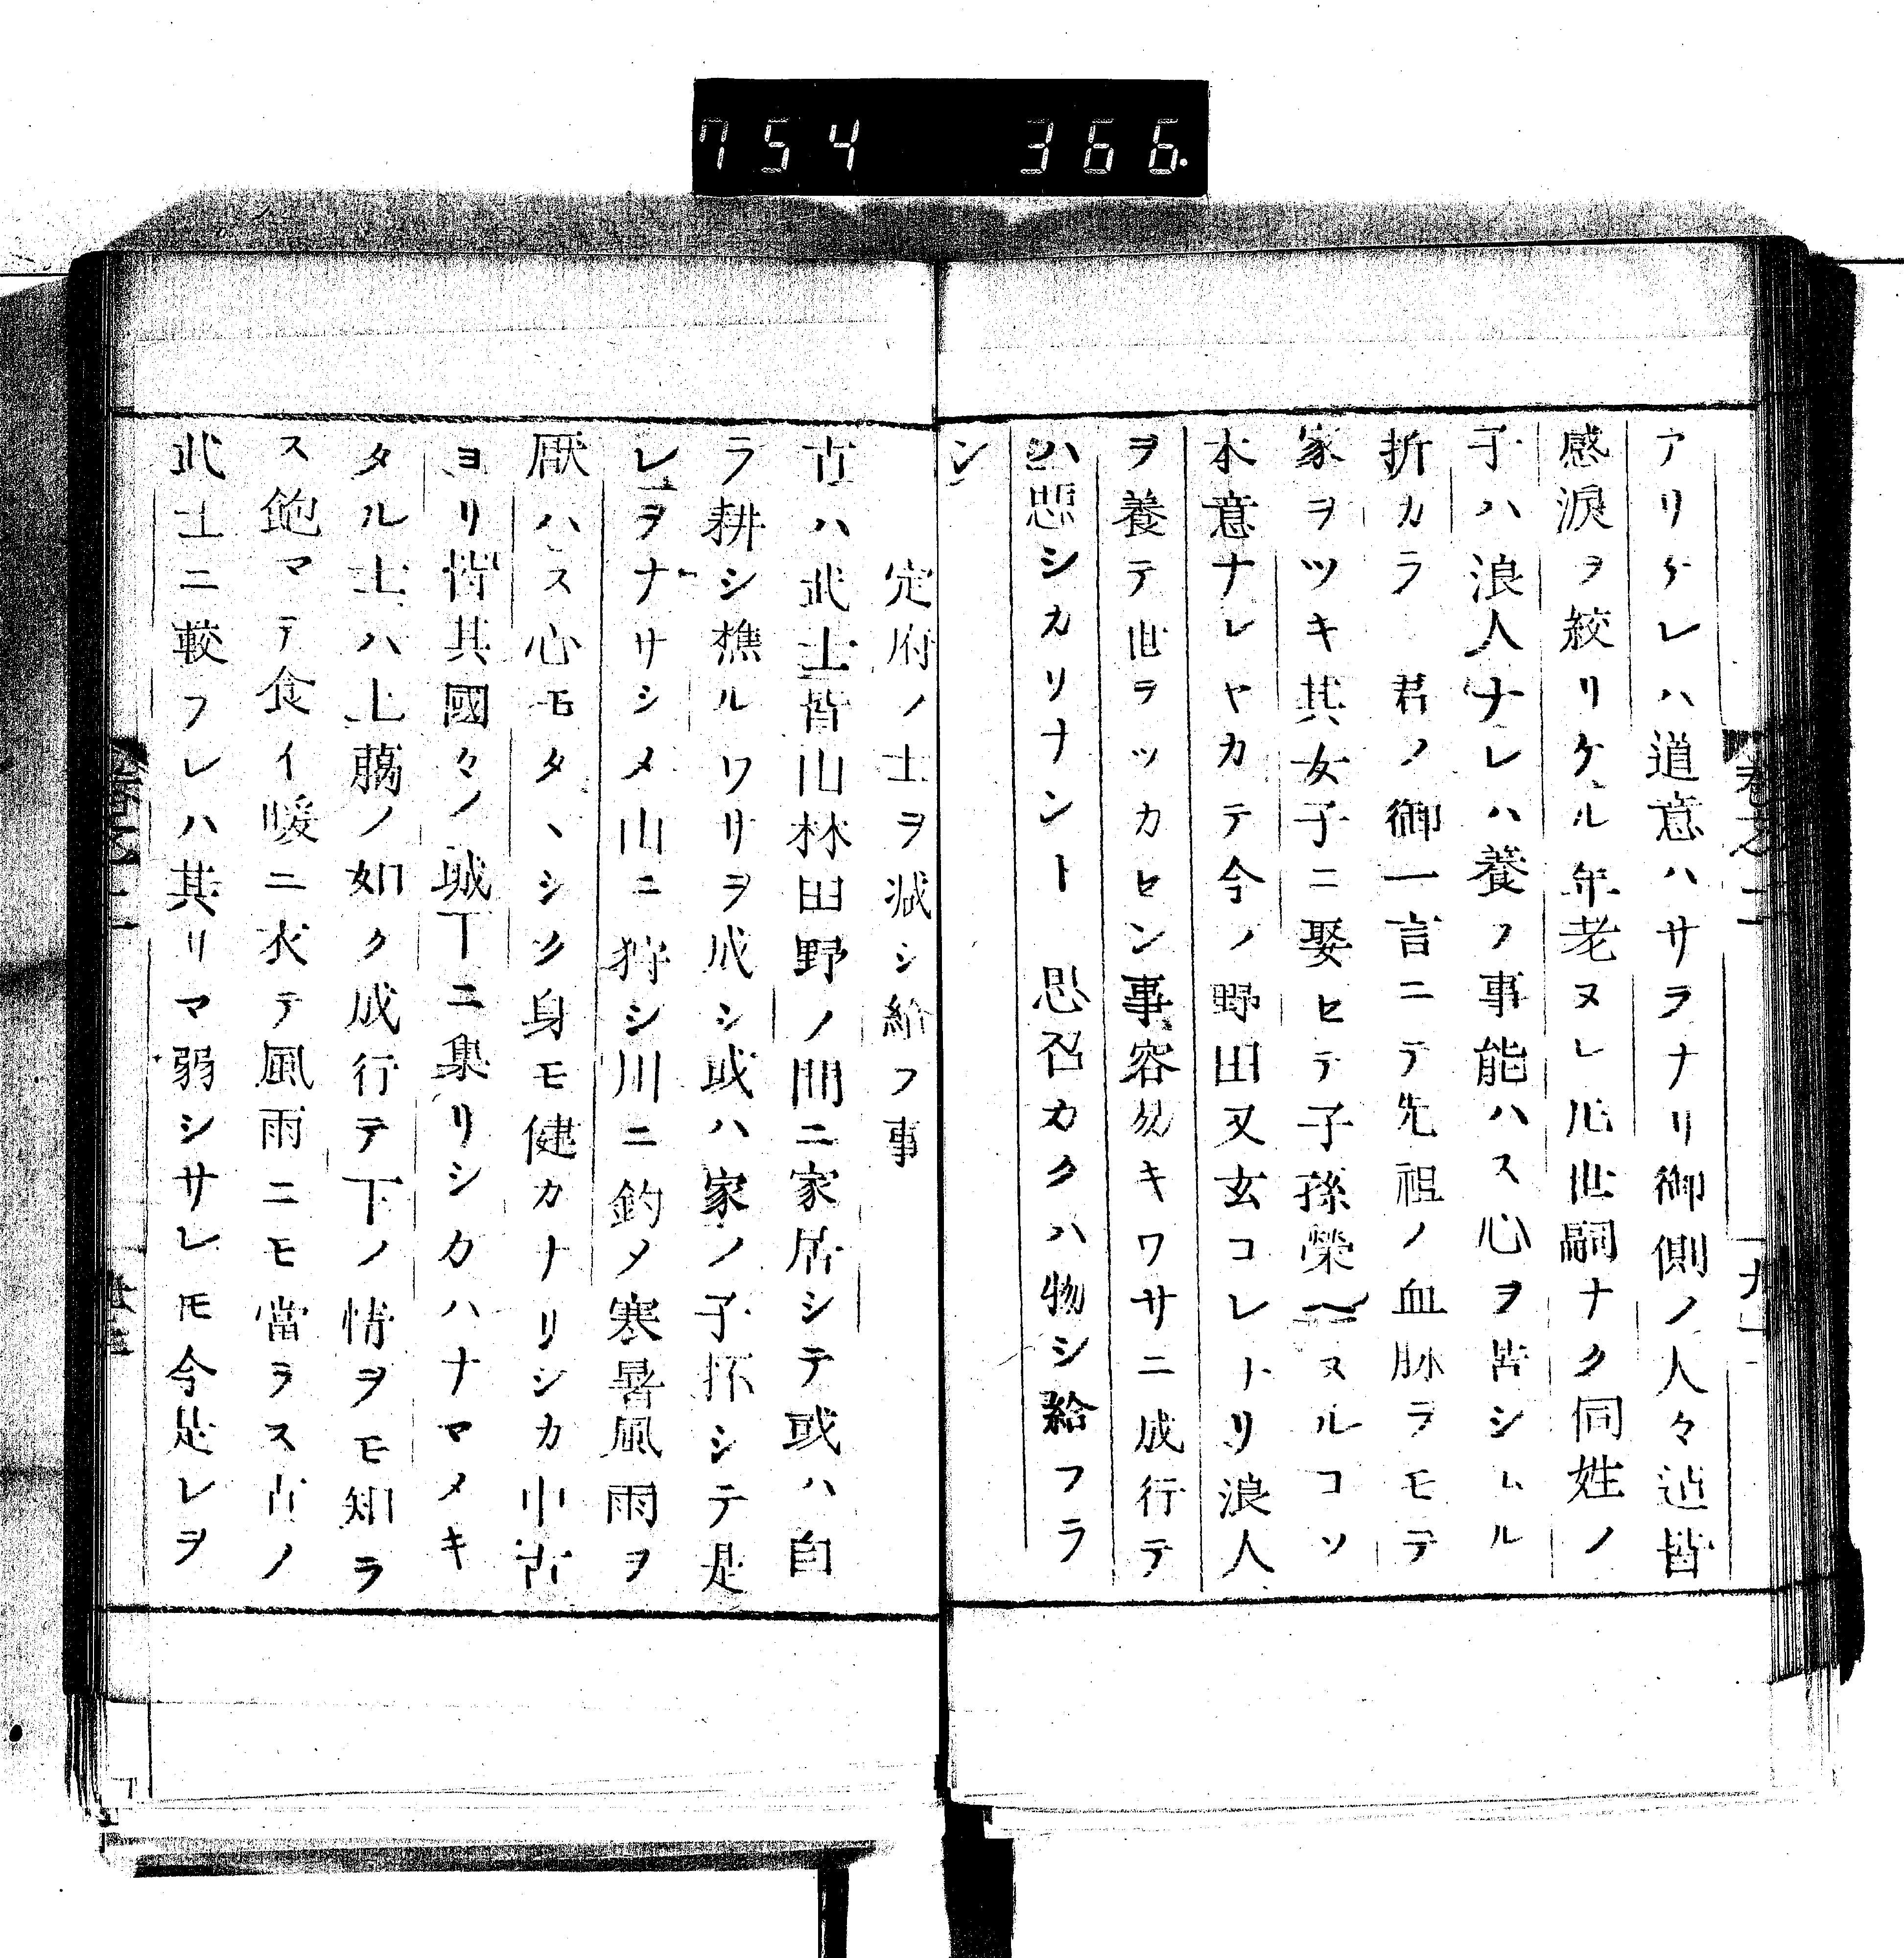 754 366.
アリケレハ道意ハサラナリ御側ノ人々迠皆
感淚ヲ絞リケル年老ヌレ𪜈世嗣ナク同姓ノ
子ハ浪人ナレハ養フ事能ハス心ヲ苦シムル
折カラ 君ノ御一言ニテ先祖ノ血脉ヲモテ
家ヲツキ其女子ニ娶ヒテ子孫榮ヘヌルコソ
本意ナレヤカテ今ノ野田又玄コレナリ浪人
ヲ養テ世ヲツカセン事容易キワサニ成行テ
ハ悪シカリナント 思召カクハ物シ給フラ
ン
定府ノ士ヲ減シ給フ事
古ハ武士皆山林田野ノ間ニ家居シテ或ハ自
ラ耕シ樵ルワリヲ成シ或ハ家ノ子抔シテ是
レヲナサシメ山ニ狩シ川ニ釣メ寒暑風雨ヲ
厭ハス心モタヽシク身モ健カナリシカ中古
ヨリ皆其國々ノ城下ニ集リシカハナマメキ
タル士ハ上﨟ノ如ク成行テ下ノ情ヲモ知ラ
ス飽マテ食イ暖ニ衣テ風雨ニモ當ラス古ノ
武士ニ較フレハ其リマ弱シサレモ今是レヲ